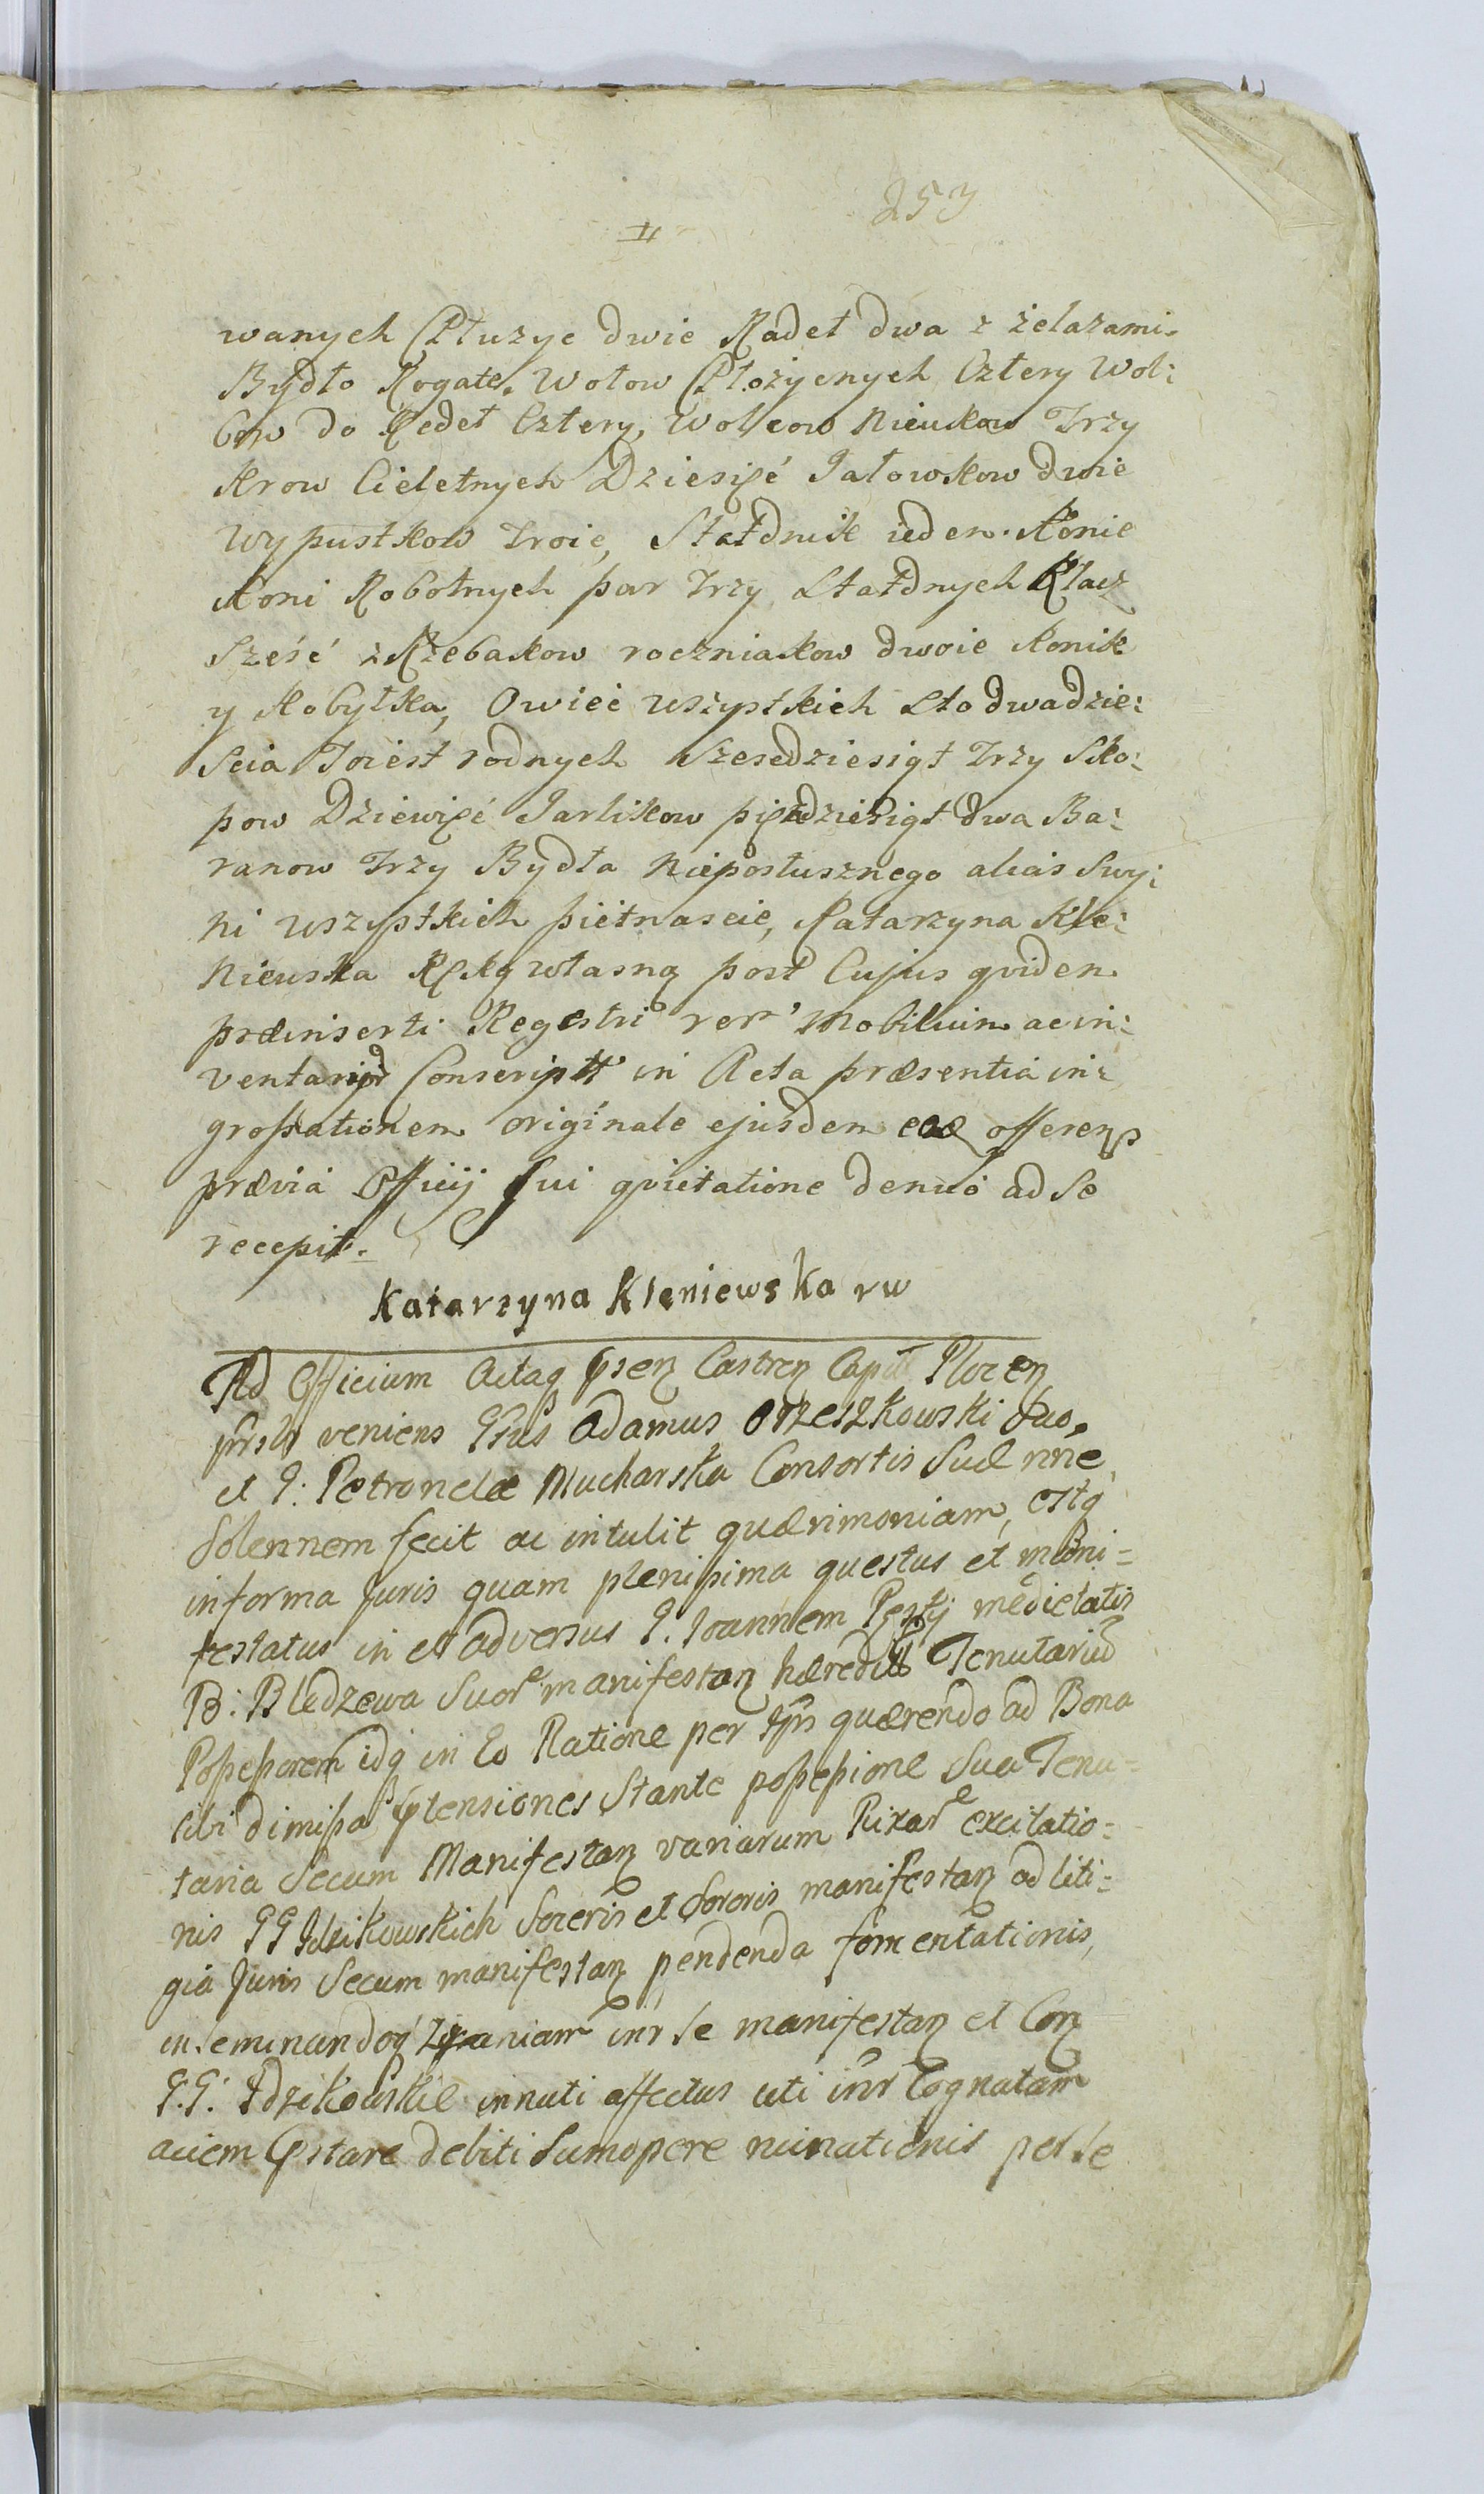 253
II
wanych Płużyc dwie Radeł dwa z żelazami.
Bydło Rogate. Wołow Płożycnych Cztery Wol:
ców do Redeł Cztery, Wolcow Nieukow Trzy
Krow Cieletnych Dziesięć Jałowkow dwie
Wypustkow Troie, Stadnik ieden. Konie
Koni Robotnych par Trzy Stadnych Klacz
Sześć z Rzebakow roczniakow dwoie Konik
y Kobyłka, Owiec wszystkich Sto dwadzie:
scia Toiest rodnych Szescdziesiąt Trzy Sko:
pow Dziewięć Jarlikow pięćdziesiąt dwa Ba:
ranow Trzy Bydła Nieposłusznego alias Swy:
ni wszystkich piętnascie, Katarzyna Kle:
niewska Ręką własną post Cujus qvidem
præinserti Regestri rer' Mobilium ac in:
ventarior Conscript in Acta præsentia in:
grossationem originale ejusdem offerens
prævia Officij Sui qvietatione denuo ad Se
recepit.
Katarzyna Kleniewska rw
Ad Officium Actaq psen Castren Capit Plocen
prslr veniens Grsus Adamus Orzeszkowski Suo,
et G: Petronelæ Mucharska Consortis Suæ nne,
Solennem fecit ac intulit quærimoniam, estq
in forma Juris quam plenissima questus et mani=
festatus in et adversus G. Ioannem medietatis
B: Bledzewa Suor manifestan hæredit Tenutariu
Possessorem idq in Eo Ratione per Ips quærendo ad Bona
sibi dimissa ptensiones Stante possessione Sua Tenu=
taria Secum Manifestan variarum Rixar excitatio=
nis GG Idzikowskich Soceris et Sororis manifestan ad liti=
gia Juris Secum manifestan pendenda fomentationis,
inseminandoq Zizaniam intr se manifestan et Con
G.G. Idzikowskie innati affectus uti intr Cognatam
aciem pstare debiti Sumopere ruinationis per se